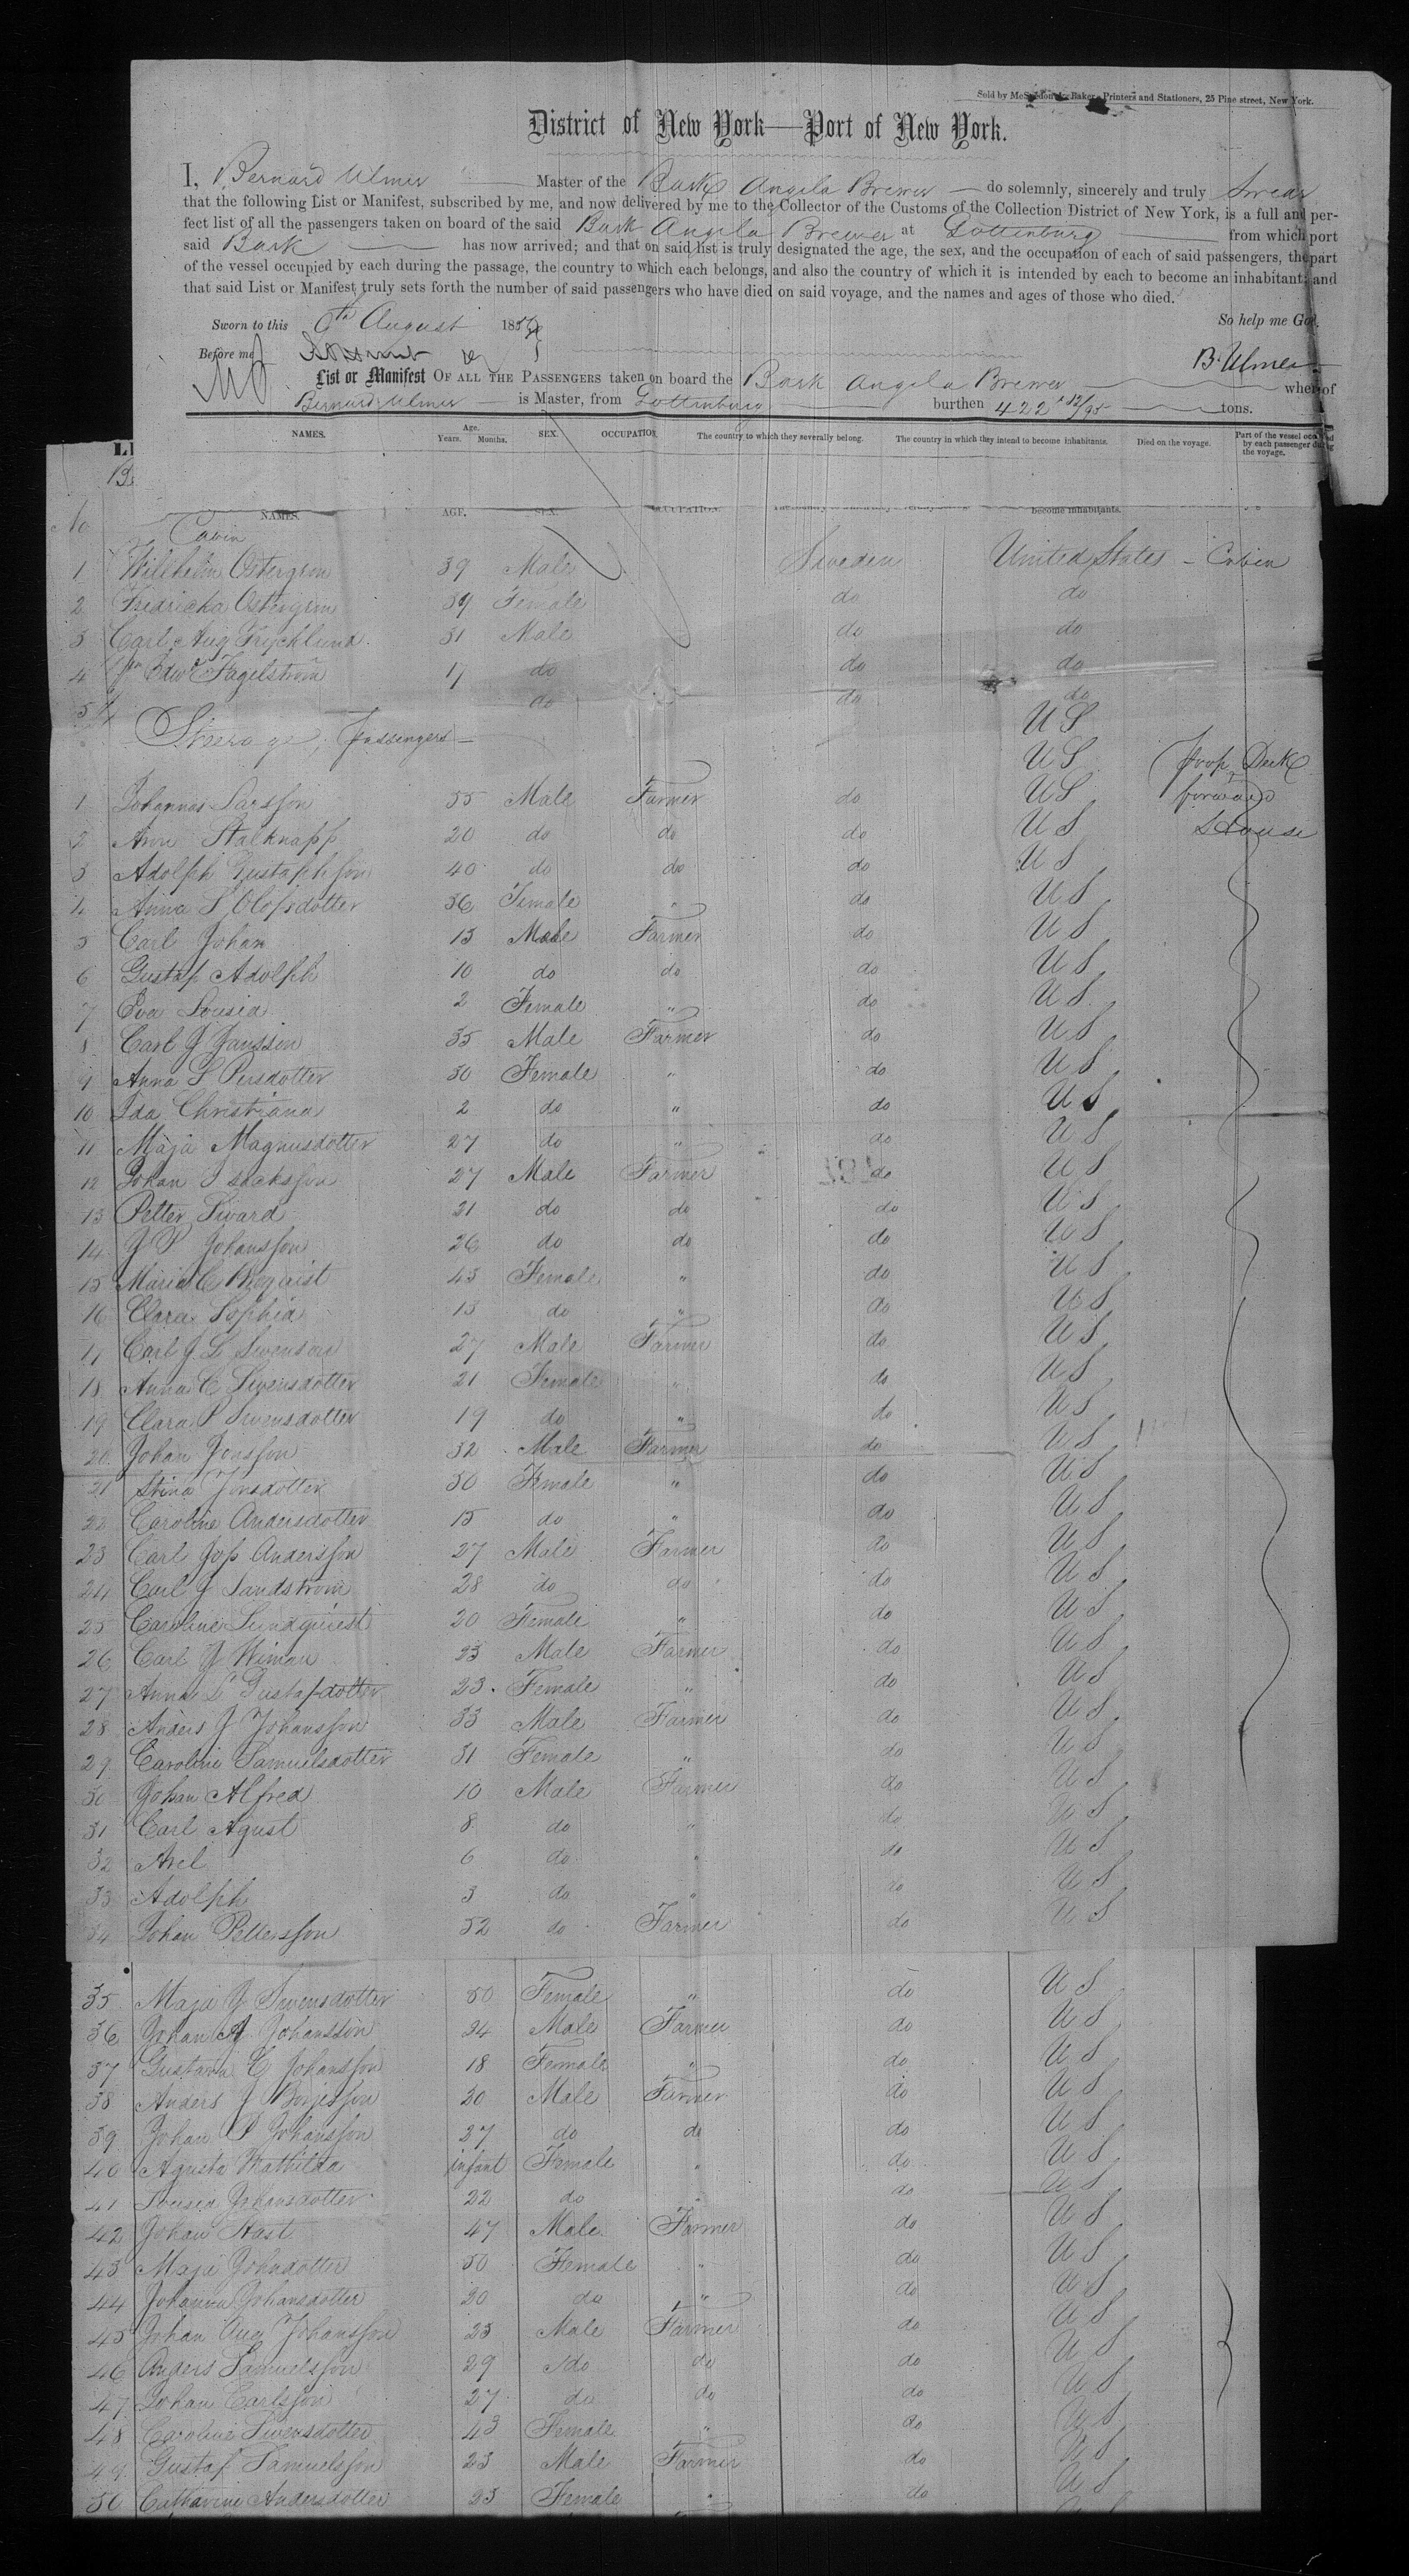 Sold by McSpedon & Baker, Printers and Stationers, 25 Pine street, New York.
District of New York—Port of New York.
I, Bernard Ulmer Master of the Bark Angela Brewer do solemnly, sincerely and truly Swear
that the following List or Manifest, subscribed by me, and now delivered by me to the Collector of the Customs of the Collection District of New York, is a full and per-
fect list of all the passengers taken on board of the said Bark Angela Brewer at Gottenburg from which port
said Bark has now arrived; and that on said list is truly designated the age, the sex, and the occupation of each of said passengers, the part
of the vessel occupied by each during the passage, the country to which each belongs, and also the country of which it is intended by each to become an inhabitant; and
that said List or Manifest truly sets forth the number of said passengers who have died on said voyage, and the names and ages of those who died.
Sworn to this 6th August 185 So help me God.
Before me B. Ulmer
List or Manifest OF ALL THE PASSENGERS taken on board the Bark Angela Brewer whereof
Bernard Ulmer is Master, from Gottenburg burthen 422 82/95 tons.
NAMES. Age. Years. Months. SEX. OCCUPATION. The country to which they severally belong. The country in which they intend to become inhabitants. Died on the voyage. Part of the vessel occupied by each passenger during the voyage.
No NAMES. AGE. SEX. OCCUPATION. become inhabitants.
Cabin
1 Willhelm Ostergren 39 Male Sweden United States - Cabin
2 Fredricka Ostergren 39 Female do do
3 Carl Aug Frycklund 31 Male do do
4 Edwd Fagelstrom 17 do do do
5 do do do
Steerage Passengers U S
U S
1 Johannas Larsson 55 Male Farmer do U S
2 Stalknapp 20 do do do U S
3 Adolph Gustaphson 40 do do do U S
4 Anna S Olofsdotter 36 Female " do U S
5 Carl Johan 13 Male Farmer do U S
6 Gustaf Adolph 10 do do do U S
7 Eva Lousia 2 Female " do U S
8 Carl J Jansson 35 Male Farmer do U S
9 Anna S Persdotter 30 Female " do U S
10 Ida Christiana 2 do " do U S
11 Maja Magnusdotter 27 do " do U S
12 Johan Isacksson 27 Male Farmer do U S
13 Petter Sward 21 do do do U S
14 J P Johansson 26 do do do U S
15 Maria C 43 Female " do U S
16 Clara Sophia 13 do " do U S
17 Carl J L Swenson 27 Male Farmer do U S
18 Anna C Swensdotter 21 Female " do U S
19 Clara P Swensdotter 19 do " do U S
20 Johan Jonsson 32 Male Farmer do U S
21 Stina Jonsdotter 30 Female " do U S
22 Caroline Andersdotter 15 do " do U S
23 Carl Jos Andersson 27 Male Farmer do U S
24 Carl J Sandstrom 28 do do do U S
25 Caroline Lundquiest 20 Female " do U S
26 Carl J Wiman 23 Male Farmer do U S
27 Anna L Gustafdotter 23 Female " do U S
28 Anders J Johansson 33 Male Farmer do U S
29 Caroline Samuelsdotter 31 Female " do U S
30 Johan Alfred 10 Male Farmer do U S
31 Carl Agust 8 do " do U S
32 Axel 6 do " do U S
33 Adolph 3 do " do U S
34 Johan Pettersson 52 do Farmer do U S
35 Maja J Swensdotter 50 Female " do U S
36 Johan A Johansson 24 Male Farmer do U S
37 Gustava C Johansson 18 Female " do U S
38 Anders J Borjesson 20 Male Farmer do U S
39 Johan P Johansson 27 do do do U S
40 Agusta Mathilda infant Female " do U S
41 Lousia Johansdotter 22 do " do U S
42 Johan Hast 47 Male Farmer do U S
43 Maja Johndotter 50 Female " do U S
44 Johanna Johansdotter 20 do " do U S
45 Johan Aug Johansson 23 Male Farmer do U S
46 Anders Samuelsson 29 do do do U S
47 Johan Carlsson 27 do do do U S
48 Caroline Swensdotter 43 Female " do U S
49 Gustaf Samuelsson 23 Male Farmer do U S
50 Catharine Andersdotter 23 Female " do U S
Deck
forward
House